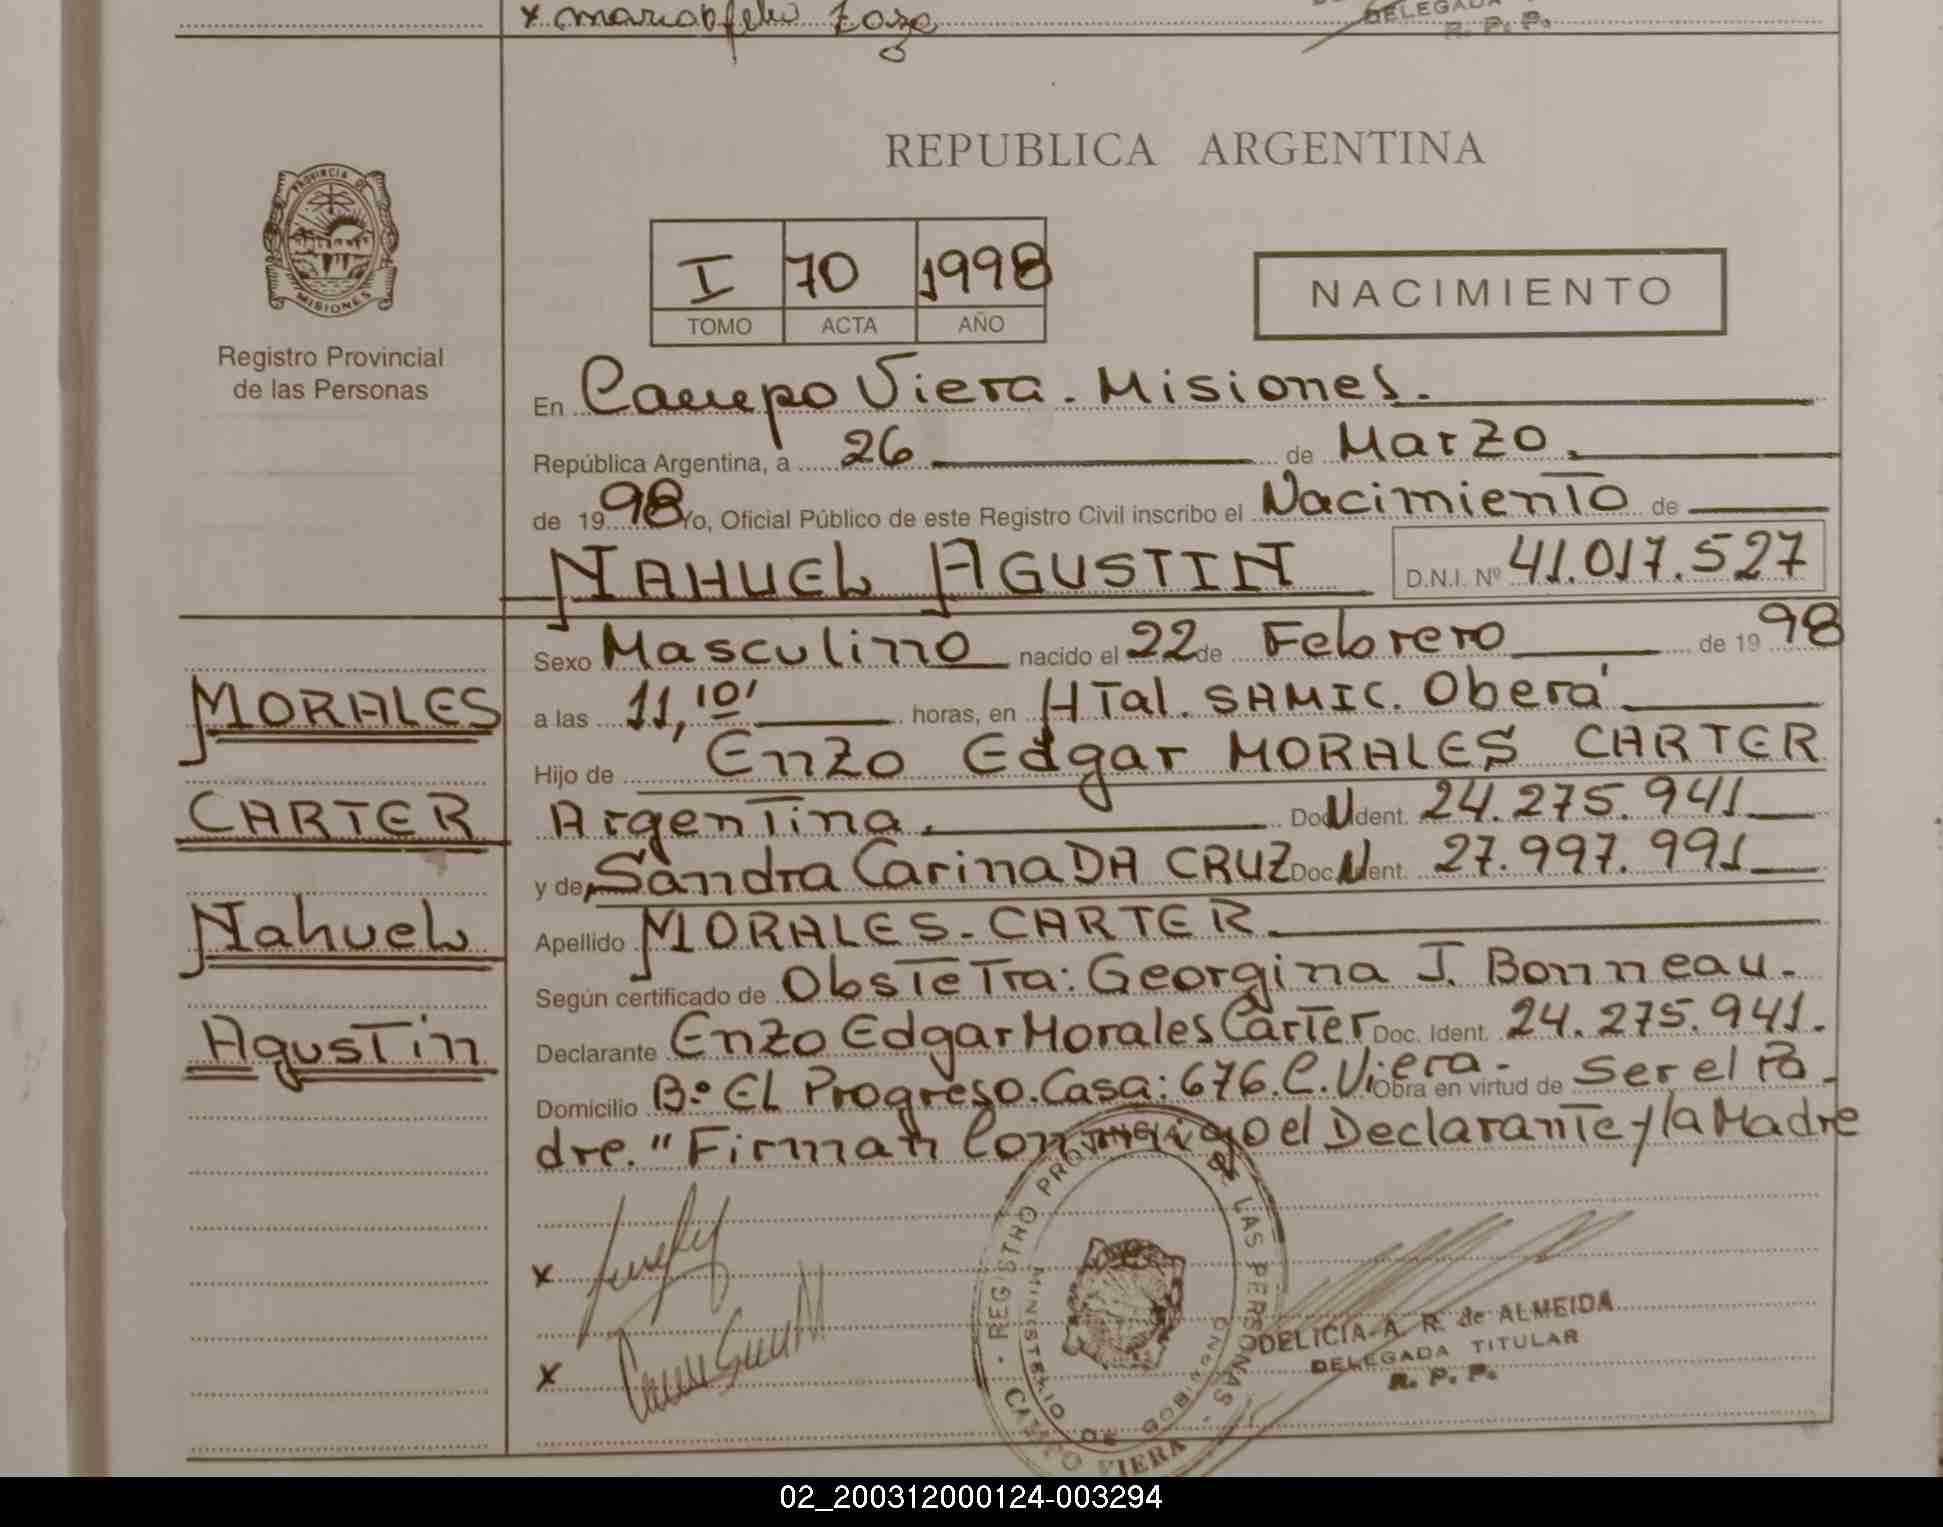 DELEGADA
R. P. P.
REPUBLICA ARGENTINA
PROVINCIA DE
MISIONES
Registro Provincial
de las Personas
I 70 1998
TOMO ACTA AÑO
NACIMIENTO
En Campo Viera. Misiones.
República Argentina, a 26 de Marzo.
de 1998 Yo, Oficial Público de este Registro Civil inscribo el Nacimiento de
NAHUEL AGUSTIN D.N.I. Nº 41.017.527
MORALES
CARTER
Nahuel
Agustin
Sexo Masculino nacido el 22 de Febrero de 1998
a las 11,10' horas, en HTal. SAMIC. Oberá
Hijo de Enzo Edgar MORALES CARTER
Argentina. Doc. Ident. 24.275.941
y de Sandra Carina DA CRUZ Doc. Ident. 27.997.991
Apellido MORALES-CARTER
Según certificado de Obstetra: Georgina J. Bonneau.
Declarante Enzo Edgar Morales Carter Doc. Ident. 24.275.941.
Domicilio Bº EL Progreso. Casa: 676. C. Viera. Obra en virtud de Ser el Pa-
dre. "Firman Conmigo el Declarante y la Madre
x
x
REGISTRO PROVINCIAL DE LAS PERSONAS
MINISTERIO DE GOBIERNO
CAMPO VIERA
DELICIA A. R. de ALMEIDA
DELEGADA TITULAR
R. P. P.
02_200312000124-003294